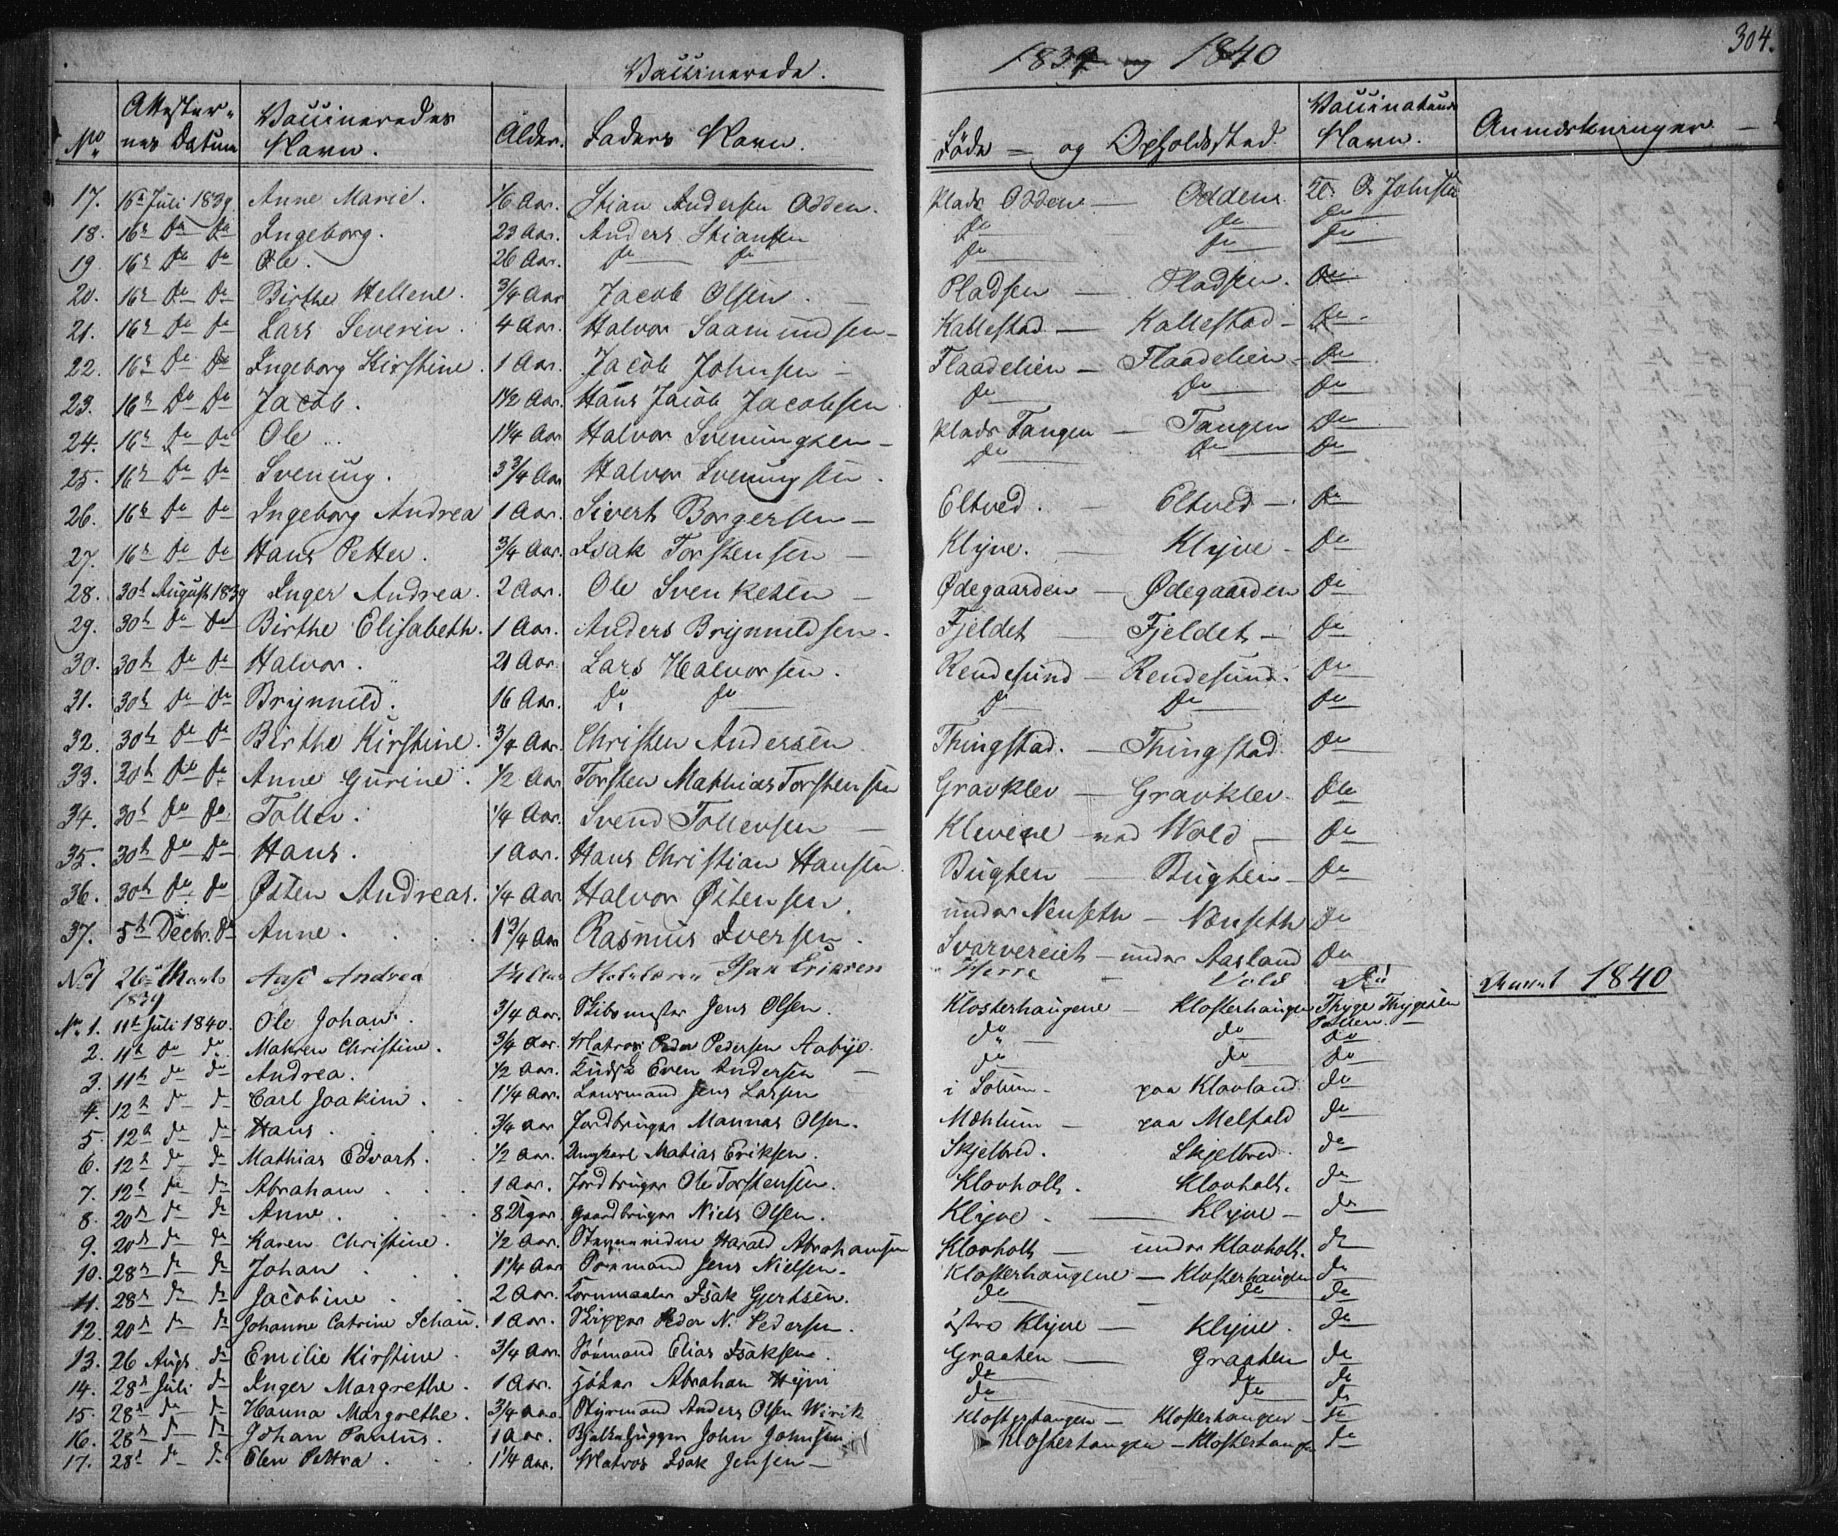 Vaccinerede. 1839 og 1840 304.
No Attesternes Datum Vaccineredes Navn. Alder. Faders Navn. Føde- og Opholdssted. Navn. Anmærkninger
17. 16de Juli 1839 Anne Marie. 1/6 Aar. Stian Andersen Odden. Plads Odden — Odden
18. 16de Do Do Ingeborg. 23 Aar. Anders Stiansen Do Do Do
19 16de Do Do Ole. 26 Aar. Do Do Do Do Do
20. 16de Do Do Birthe Hellene. 3/4 Aar Jacob Olsen. — Pladsen — Pladsen. Do
21. 16de Do Do Lars Severin. 4 Aar. Halvor Saamundsen — Kallestad — Kallestad — Do
22. 16de Do Do Ingeborg Kirstine. 1 Aar. Jacob Johnsen — Flaadelien — Flaadelien — Do
23. 16de Do Do Jacob. 1½ Aar. Hans Jacob Jacobsen Do Do Do
24. 16de Do Do Ole. 1¼ Aar Halvor Sveningsen — Plads Tangen — Tangen Do
25. 16de Do Do Svening. 3¾ Aar Halvor Sveningsen. Do Do Do
26. 16de Do Do Ingeborg Andrea 1 Aar. Sivert Borgersen — Eltved. — Eltved — Do
27. 16de Do Do Hans Petter. 3/4 Aar. Isak Torstensen — Klyve. Klyve — Do
28. 30te August 1839 Inger Andrea. 2 Aar. Ole Svenkesen — Ødegaarden — Ødegaarden Do
29. 30te Do Do Birthe Elisabeth. 1 Aar. Anders Brynnildsen. Fjeldet — Fjeldet — Do
30. 30te Do Do Halvor. 21 Aar. Lars Halvorsen. Rendesund — Rendesund. Do
31. 30te Do Do Brynnild. 16 Aar. Do Do Do Do Do
32. 30te Do Do Birthe Kirstine. 3/4 Aar. Christen Andersen Thingstad. — Thingstad. Do
33. 30te Do Do Anne Gurine. 1/2 Aar Torsten Mathias Torstensen Gravklev — Gravklev. Do
34. 30te Do Do Tollev. 1/4 Aar. Svend Tollevsen — Klevene ved Wold — Do
35. 30te Do Do Hans. 1 Aar. Hans Christian Hansen Bugten — Bugten — Do
36. 30te Do Do Østen Andreas. 1/4 Aar Halvor Østensen. under Nenseth — Nenseth Do
37. 5te Decbr. Do Anne. 1¾ Aar Rasmus Iversen. Svarvereiet — under Aasland Do
No 1 26de Marts 1839 Andrea Isak Eriksen Herre Vold 1840
No. 1. 11te Juli 1840. Ole Johan. 3/4 Aar. Skibsmester Jens Olsen. Klosterhaugene — Klosterhaugen Thyge Thygesen
2. 11te do do Mahren Christine. 3/4 Aar. Matros Peder Pedersen Aabye. do do do
3. 11te do do Andrea. 1/2 Aar. Even Andersen — do do do
4. 12te do do Carl Joakim. 1¼ Aar Jens Larsen i Solum — paa Klovland do
5. 12te do do Hans. 3/4 aar Jordbruger Mannas Olsen. Mæhlum — paa Melfald do
6. 12te do do Mathias Edvart. 1/2 Aar. Ungkarl Matias Eriksen. Skjelbred. Skjelbred. do
7. 12te do do Abraham. 1 Aar. Jordbruger Ole Torstensen. Klovholt. Klovholt. do
8. 20de do do Anne. 8 Uger Gaardbruger Niels Olsen. Klyve. — Klyve — do
9. 20de do do Karen Christine. 1/2 Aar. Harald Abrahamsen Klovholt — under Klovholt. do
10. 28de do do Johan 1¼ Aar Sømand Jens Nielsen. Klosterhaugene — Klosterhaugen do
11. 28de do do Jacobine. 2 Aar. Kornmaaler Isak Gjertsen. do do do
12. 20de do do Johanne Catrine Schau. 1 Aar. Skipper Peder N. Pedersen. østre Klyve — Klyve. do
13. 26 Augs. do Emilie Kirstine. 3/4 Aar. Sømand Elias Isaksen. Graaten — Graaten do
14. 28de Juli do Inger Margrethe. 1 Aar. Høker Abraham do do do
15. 28de do do Hanna Margrethe. 3/4 Aar Styrmand Anders Olsen Wirik do do do
16. 28de do do Johan Paulus. 1 Aar. Bjelkehugger John Johnsen Klosterhaugen — Klosterhaugen — do
17. 28de do do Elen Pettra. 1¼ Aar. Matros Isak Jensen — Klosterhaugen — Klosterhaugen do